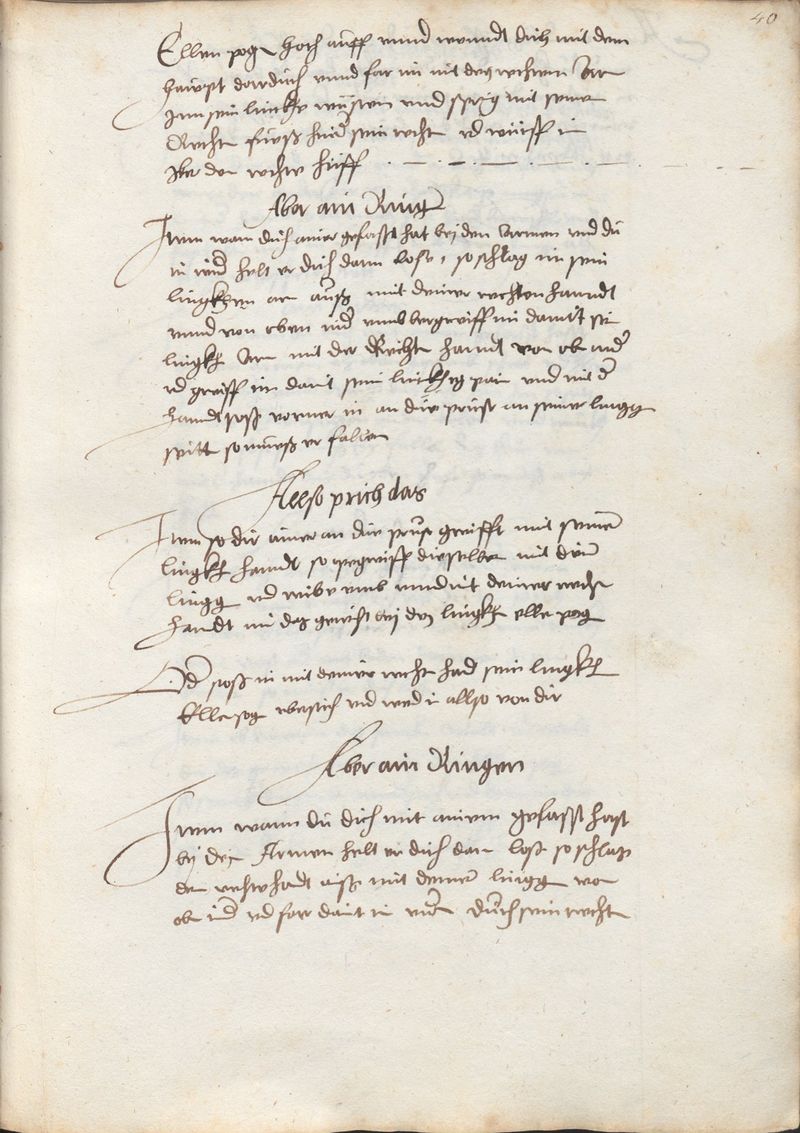 40
Ellen pogn hoch auff vnnd wenndt dich mit dem
haupt dardurch vnnd far im mit deg rechten Arm
Inn sein lincke vchsen vnd spring mit seinem
Rechtn fueß hinder sein recht vnd wurff in
Vber den rechten hüff
Aber ain Ringn
Item wann dich ainer gefasst hat bei den Armen vnd du
in wider helt er dich dann lose, so schlag im sein
lingkhen arm auß mit deiner rechten hanndt
vnnd von oben nider vmb vbergreiff im damit sein
lingkn Arm mit der Rechtn handt von obn nider
vnd greiff im damit sein linckhs pain vnd mit der
handt stoß vorner in an die prust an seiner lingg
seitt so mueß er fallen
Allso prich das
Item so dir ainer an die prust greifft mit seiner
lingkn handt so begreiff dieselben mit deiner
lingg vnd reibe vmb vnnd mit deiner recht
handt im das gewicht bej deg lingkn elle pogn
Oder stoß in mit deiner recht hand sein lingkn
Ellepogn vbersich vnd wend in allso von dir
Aber ain Ringen
Item wann du dich mit ainem gefasst hast
bej den Armen helt er dich dan lose so schlag
den recht handt auß mit deiner lingg von
obn nider vnd far damit in vnder durch sein recht